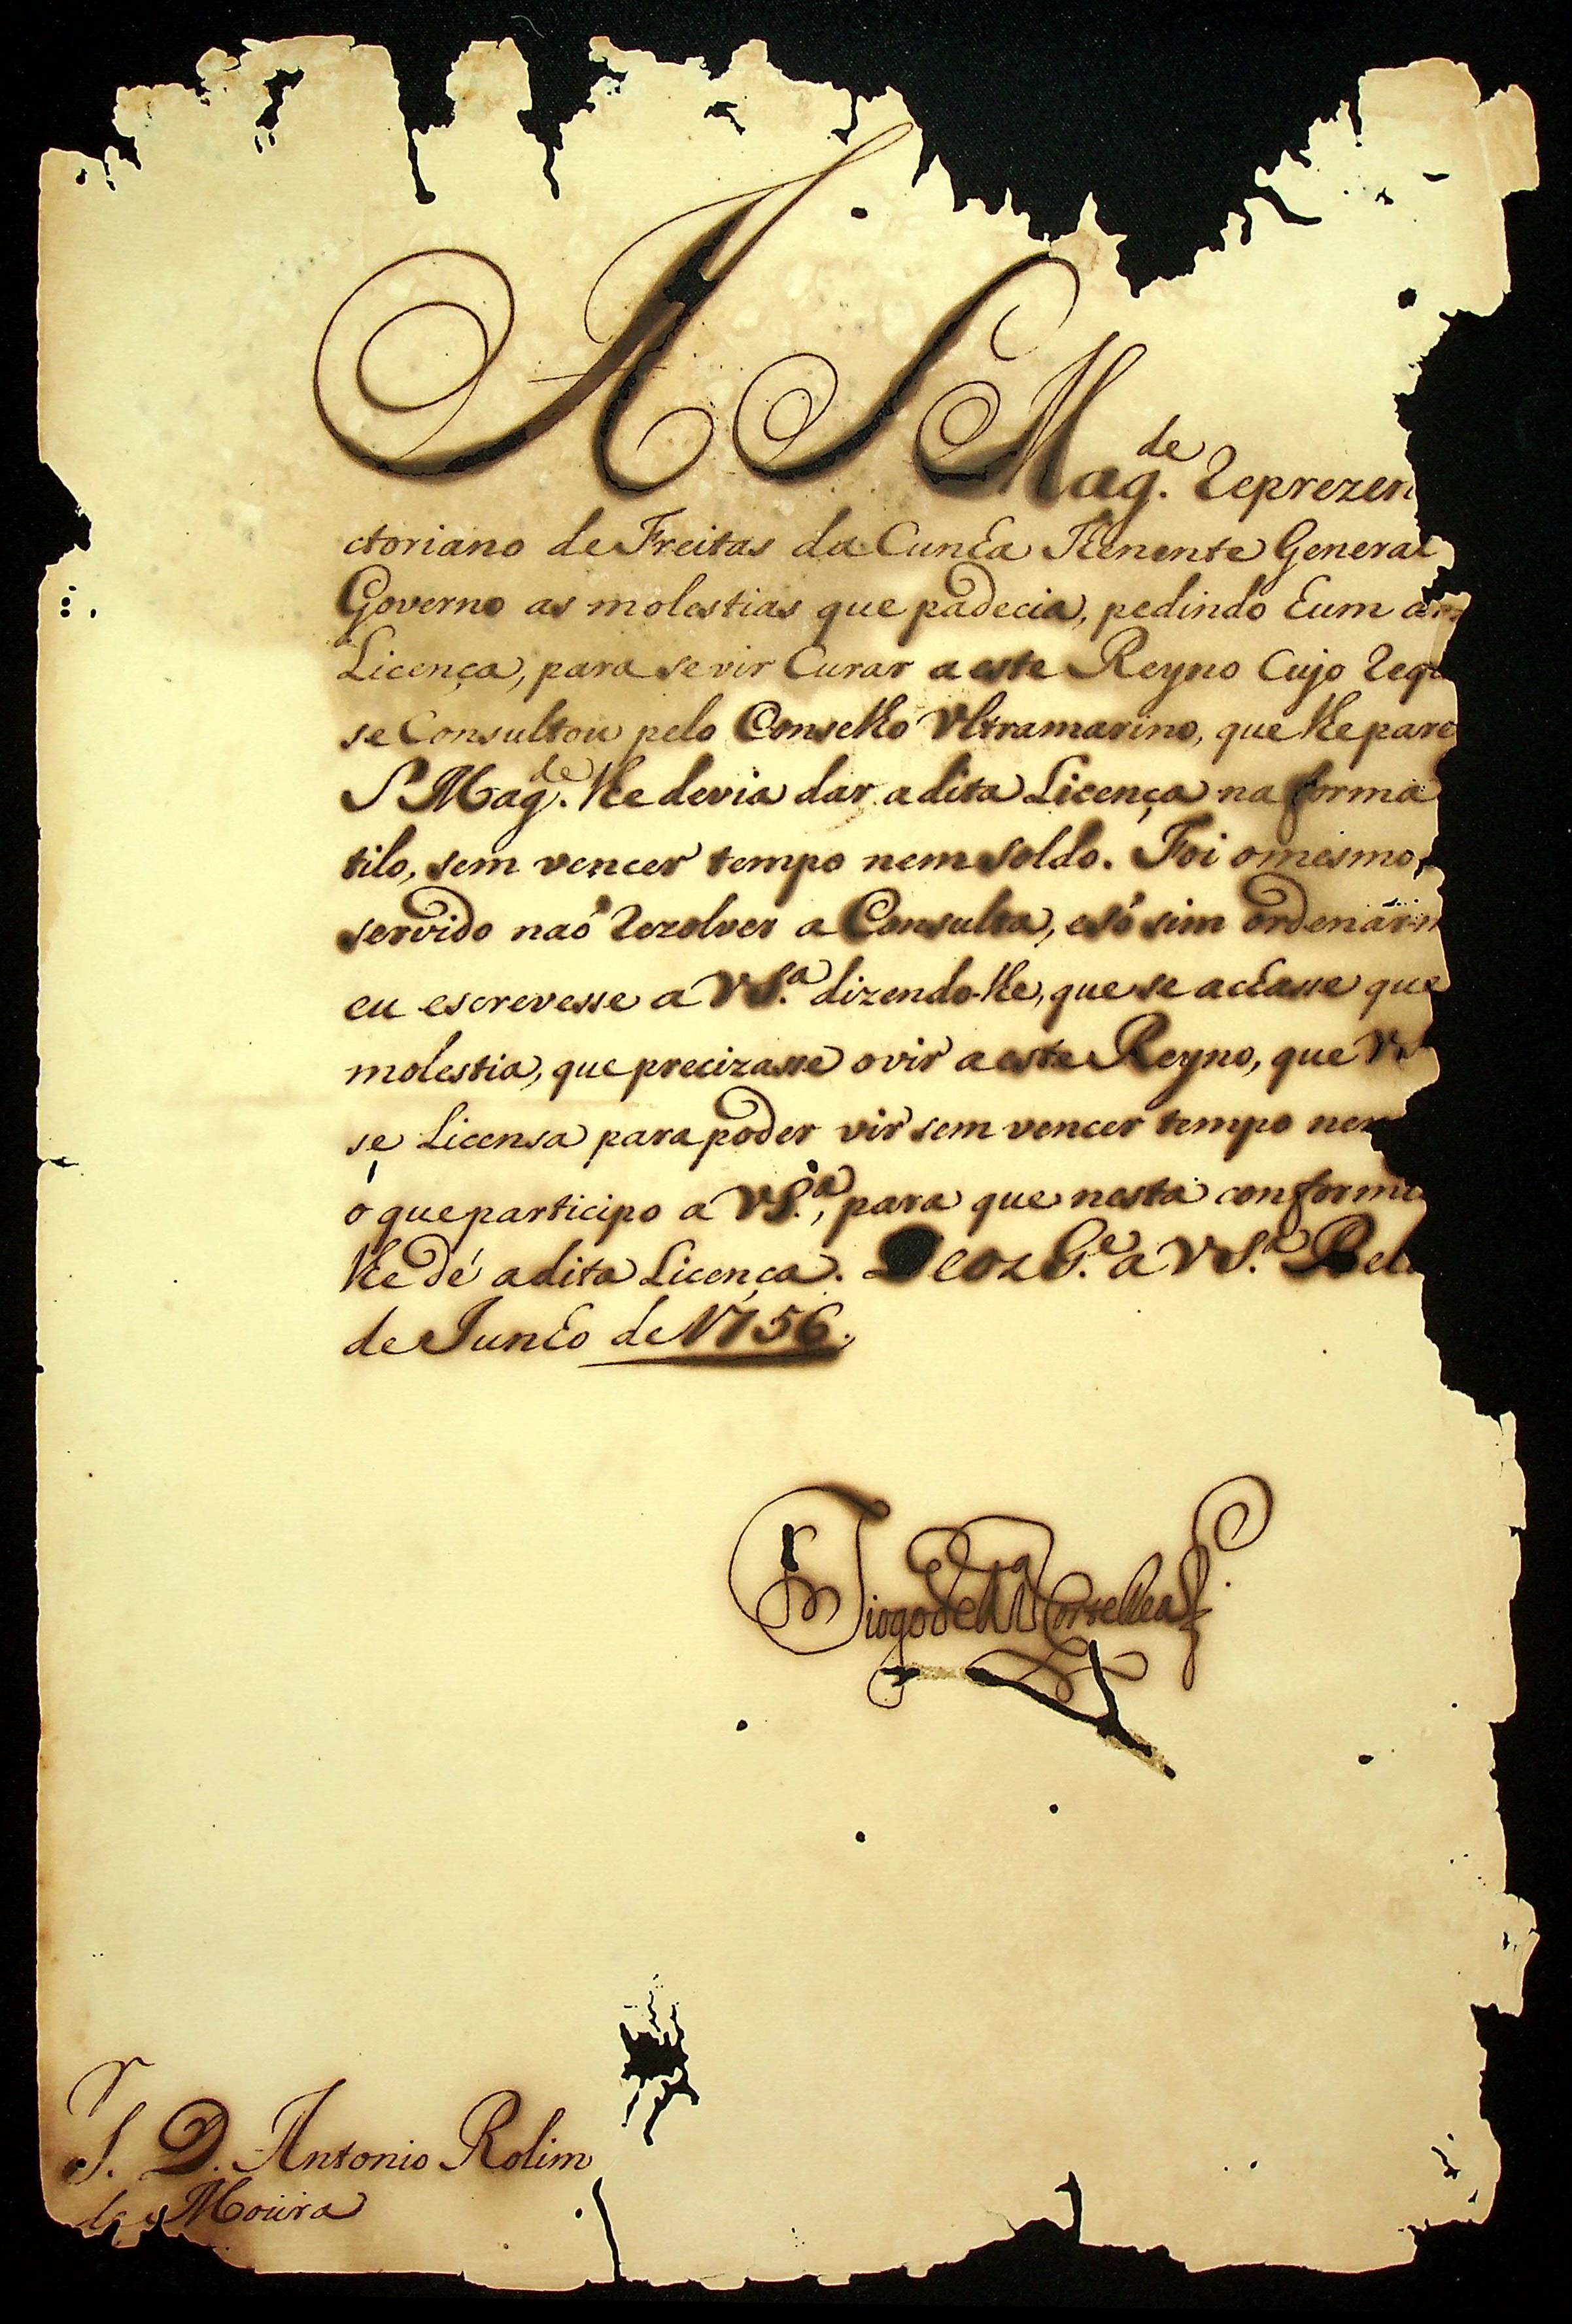 A S Mag.de reprezen
ctoriano de Freitas da Cunha Thenente General
Governo as molestias que padecia, pedindo hum an
Licença, para se vir Curar a este Reyno Cujo requ
se Consultou pelo Conselho Vltramarino, que lhe pare
S Mag.de lhe devia dar a dita Licença na forma
tilo, sem vencer tempo nem soldo. Foi o mesmo
servido naõ rezolver a Consulta, e só sim ordenár-m
eu escrevesse a VS.a dizendo-lhe, que se achasse que
molestia, que precizasse o vir a este Reyno, que
se Licensa para poder vir sem vencer tempo nem
o que participo a VS.a, para que nesta conformi
lhe dé a dita Licença. Deoz G.e a VS.a Bel
de Junho de 1756.
Diogo de M Corte Real
Sr. D. Antonio Rolim
de Moura